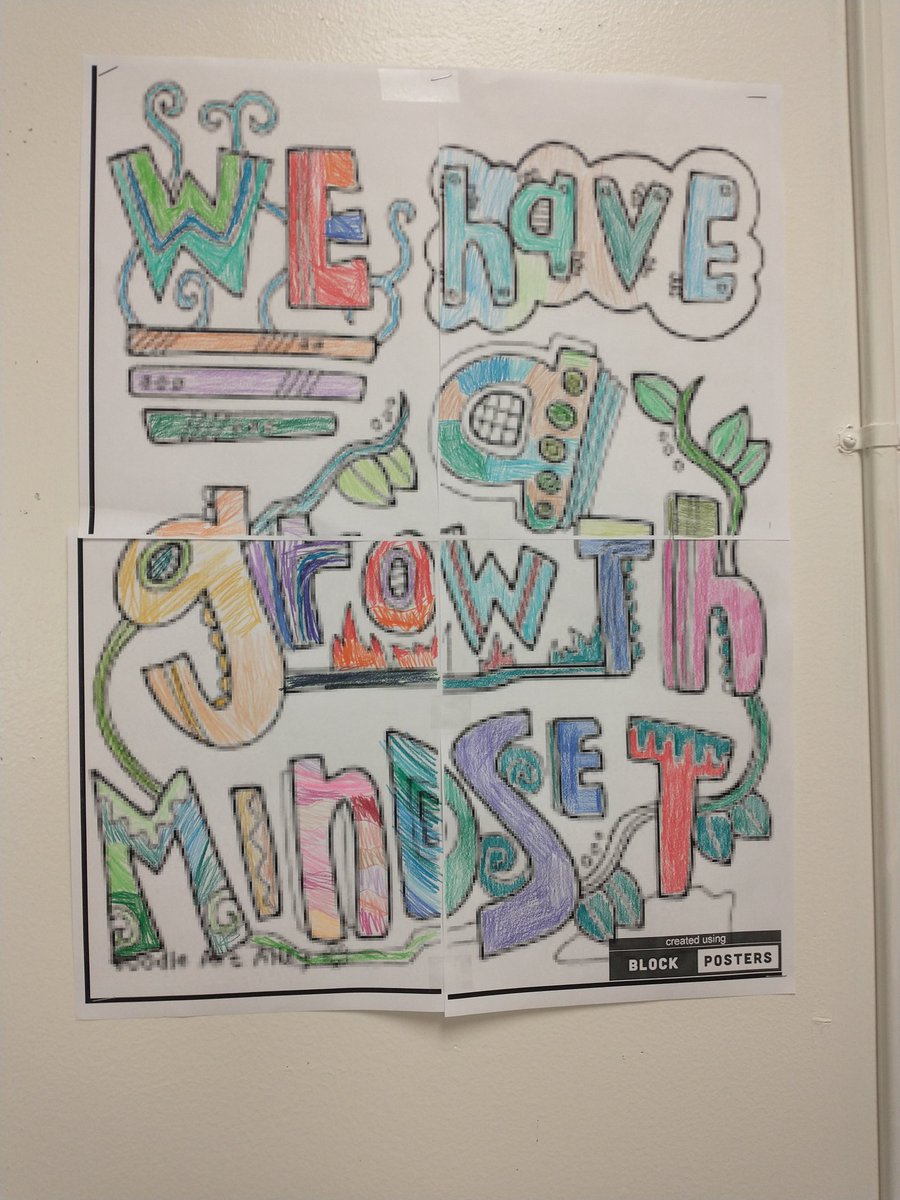 WE have
a
growTh
MindSET
Doodle Art Alley ©
created using
BLOCK POSTERS